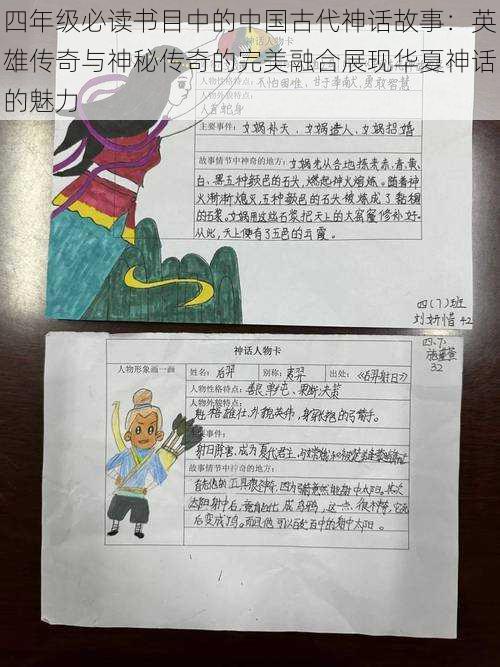 四年级必读书目中的中国古代神话故事：英
雄传奇与神秘传奇的完美融合展现华夏神话
的魅力
神话人物卡
人物性格特点：不怕困难、甘于奉献、勇敢智慧
人物外貌特点：
人首蛇身
主要事件：女娲补天、女娲造人、女娲招婚
故事情节中神奇的地方：女娲先从各地拣来赤、青、黄、
白、黑五种颜色的石头，燃起神火熔炼。随着神
火渐渐熄灭，五种颜色的石头被炼成了黏稠
的石浆。女娲用这些石浆把天上的大窟窿修补好。
从此，天上便有了五色的云霞。
四(7)班
刘妍惜 42
四.7.
32
神话人物卡
人物形象画一画
姓名：后羿 别称：夷羿 出处：《后羿射日》
人物性格特点：善良单纯、果断决策
人物外貌特点：
魁梧雄壮，外貌英伟，身穿
主要事件：
射日除害，成为夏代君主，与嫦娥
故事情节中神奇的地方：
太阳射中后，竟能
后变成了鸟。而且他可以百发百中的射中太阳。